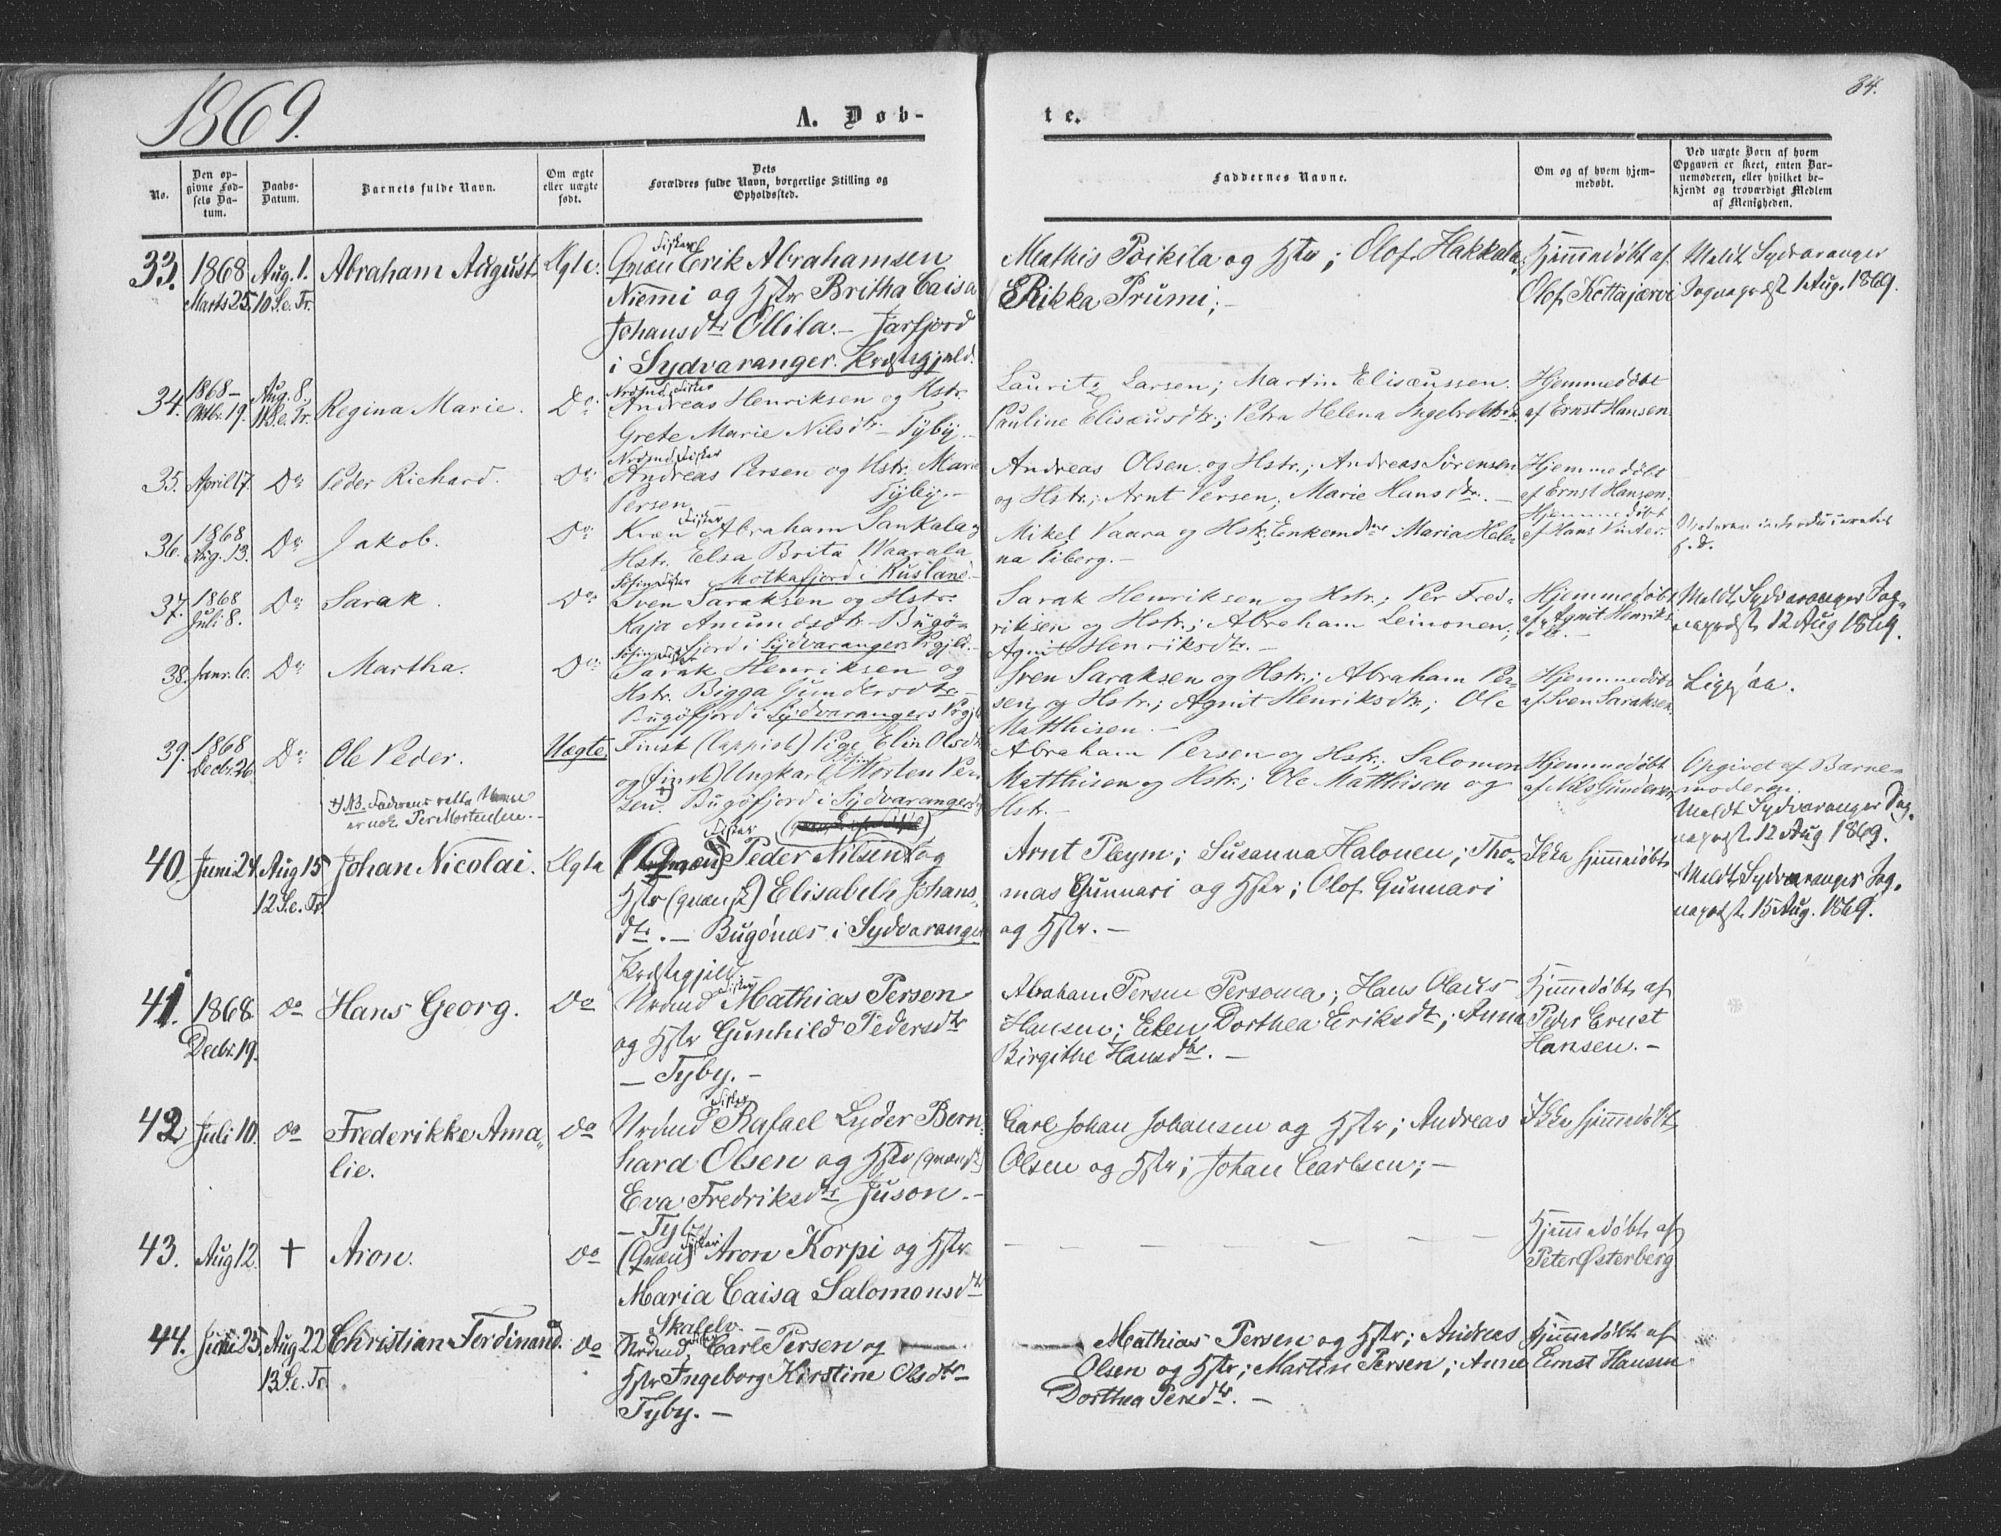 1869.
A. Døb-
te.
34.
No.
Den op-
givne Fød-
sels Da-
tum.
Daabs-
Datum.
Barnets fulde Navn.
Om ægte
eller uægte
født.
Dets
Forældres fulde Navn, borgerlige Stilling og
Opholdssted.
Faddernes Navne.
Om og af hvem hjem-
medøbt.
Ved uægte Børn af hvem
Opgaven er skeet, enten Bar-
nemoderen, eller hvilket be-
kjendt og troværdigt Medlem
af Menigheden.
33.
1868
Marts 25.
Aug. 1.
10 S. e. Tr.
Abraham August
Ægte.
Fisker
Qvæn Erik Abrahamsen
Niemi og Hstr Britha Caisa
Johansdtr Ollila. – Jarfjord
i Sydvaranger Præstegjæld.
Mathis Poikila og Hstr; Olof Hakkala;
Rikka Prumi; –
Hjemmedøbt af
Olof Kottajærvi
Meldt Sydvaranger
Sognepræst 1 Aug. 1869.
34.
1868 –
Oktbr. 19.
Aug. 8.
11 S. e. Tr.
Regina Marie.
Do.
Nordmd Fisker
Andreas Henriksen og Hstr.
Grete Marie Nilsdtr – Tyby. –
Lauritz Larsen; Martin Elisæussen.
Pauline Elisæusdtr.; Petra Helena Ingebrektsdtr.
Hjemmedøbt
af Ernst Hansen.
35.
April 17.
Do
Peder Richard.
Do.
Nordmd Fisker
Andreas Persen og Hstr. Marie
Persen. Tyby. –
Andreas Olsen og Hstr.; Andreas Sørensen
og Hstr.; Arnt Persen; Marie Hansdtr. –
Hjemmedøbt
af Ernst Hansen.
36.
1868
Aug. 13.
Do
Jakob.
Do
Fisker
Kvæn Abraham Sankala og
Hstr. Elsa Brita Waarala
Motkafjord i Rusland. –
Mikel Vaara og Hstr; Enkemdn Maria Hele-
na Viberg. –
Hjemmedøbt
af Hans Vinter.
Moderen introduceretes
s. d.
37.
1868
Juli 8.
Do
Sarak.
Do.
Søfin Fisker
Sven Saraksen og Hstr.
Kaja Amundsdtr. Bugø-
fjord i Sydvaranger Prgjld. –
Sarak Henriksen og Hstr.; Per Fred-
riksen og Hstr.; Abraham Leinonen;
Agnit Henriksdtr. –
Hjemmedøbt
af Agnit Henriks-
dtr. –
Meldt Sydvaranger Sog-
nepræst 12 Aug 1869.
38.
Janr. 6.
Do
Martha.
Do.
Søfin Fisker
Sarak Henriksen og
Hstr. Bigga Gundersdtr –
Bugøfjord i Sydvarangers Prgjld
Sven Saraksen og Hstr.; Abraham Per-
sen og Hstr.; Agnit Henriksdtr.; Ole
Matthisen. –
Hjemmedøbt
af Sven Saraksen.
Ligesaa.
39.
1868
Decbr. 26.
Do
Ole Peder.
†) NB. Faderens rette Navn
er nok Per Mortensen. –
Uægte
Finsk (lappisk) Pige Elin Olsdtr
og (finsk) Ungkarl Morten Per-
sen. Bugøfjord i Sydvaranger
Abraham Persen og Hstr. Salomon
Matthisen og Hstr.; Ole Matthisen og
Hstr. –
Hjemmedøbt
af Nils Gundersen
Opgivet af Barne-
moderen.
Meldt Sydvaranger Sog-
nepræst 12 Aug 1869.
40.
Juni 24.
Aug 15
12 S. e. Tr.
Johan Nicolai.
Ægte
Fisker
(Qvæn) Peder Nilsen og
Hstr (qvænsk) Elisabeth Johans-
dtr. – Bugønæs i Sydvaranger
Præstegjæld.
Arnt Pleym; Susanna Halonen; Tho-
mas Gunnari og Hstr; Olof Gunnari
og Hstr. –
Ikke hjemmedøbt
Meldt Sydvaranger Sog-
nepræst 15 Aug. 1869.
41.
1868
Decbr. 19.
do
Hans Georg.
Do
Fisker
Nrdmd Mathias Persen
og Hstr Gunhild Pedersdtr
– Tyby. –
Abraham Persen Persoma; Hans Olaus
Hansen; Elen Dorthea Eriksdtr; Anna
Birgithe Hansdtr. –
Hjemmedøbt af
Peder Ernst
Hansen. –
42
Juli 10.
do
Frederikke Ama-
lie.
do
Fisker
Nrdmd Rafael Lyder Bern-
hard Olsen og Hstr (qvænsk)
Eva Fredriksdtr Juson. –
– Tyby
Carl Johan Johansen og Hstr; Andreas
Olsen og Hstr; Johan Carlsen; –
Ikke hjemmedøbt
43.
Aug 12.
†
Aron.
do
Fisker
(Qvæn) Aron Korpi og Hstr
Maria Caisa Salomonsdtr
Skalelv.
Hjemmedøbt af
Peter Østerberg
44.
Juni 25.
Aug 22
13 S. e. Tr.
Christian Ferdinand.
do
Fisker
Nrdmd Carl Persen og
Hstr Ingeborg Kirstine Olsdtr –
Tyby. –
Mathias Persen og Hstr; Andreas
Olsen og Hstr; Martin Persen; Anne
Dorthea Persdtr. –
Hjemmedøbt af
Ernst Hansen